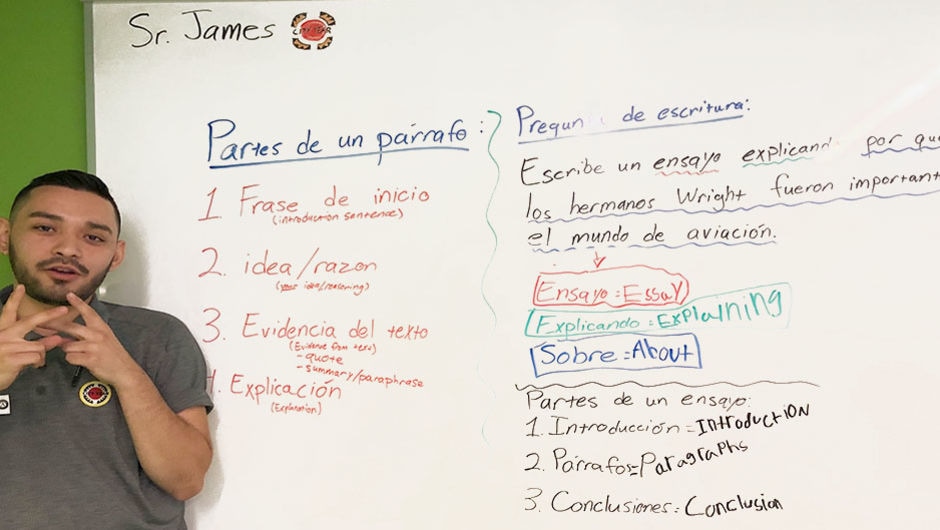 Sr. James
CITY YEAR
Partes de un párrafo:
1 Frase de inicio
(introduction sentence)
2. idea/razon
(idea/reasoning)
3. Evidencia del texto
(Evidence from text)
- quote
- summary/paraphrase
4. Explicación
(Explanation)
de escritura:
Escribe un ensayo por
los hermanos Wright fueron
el mundo de aviación.
Ensayo = Essay
Explicando = Explaining
Sobre = About
Partes de un ensayo:
1. Introducción = Introduction
2. Párrafos = Paragraphs
3. Conclusiones = Conclusion